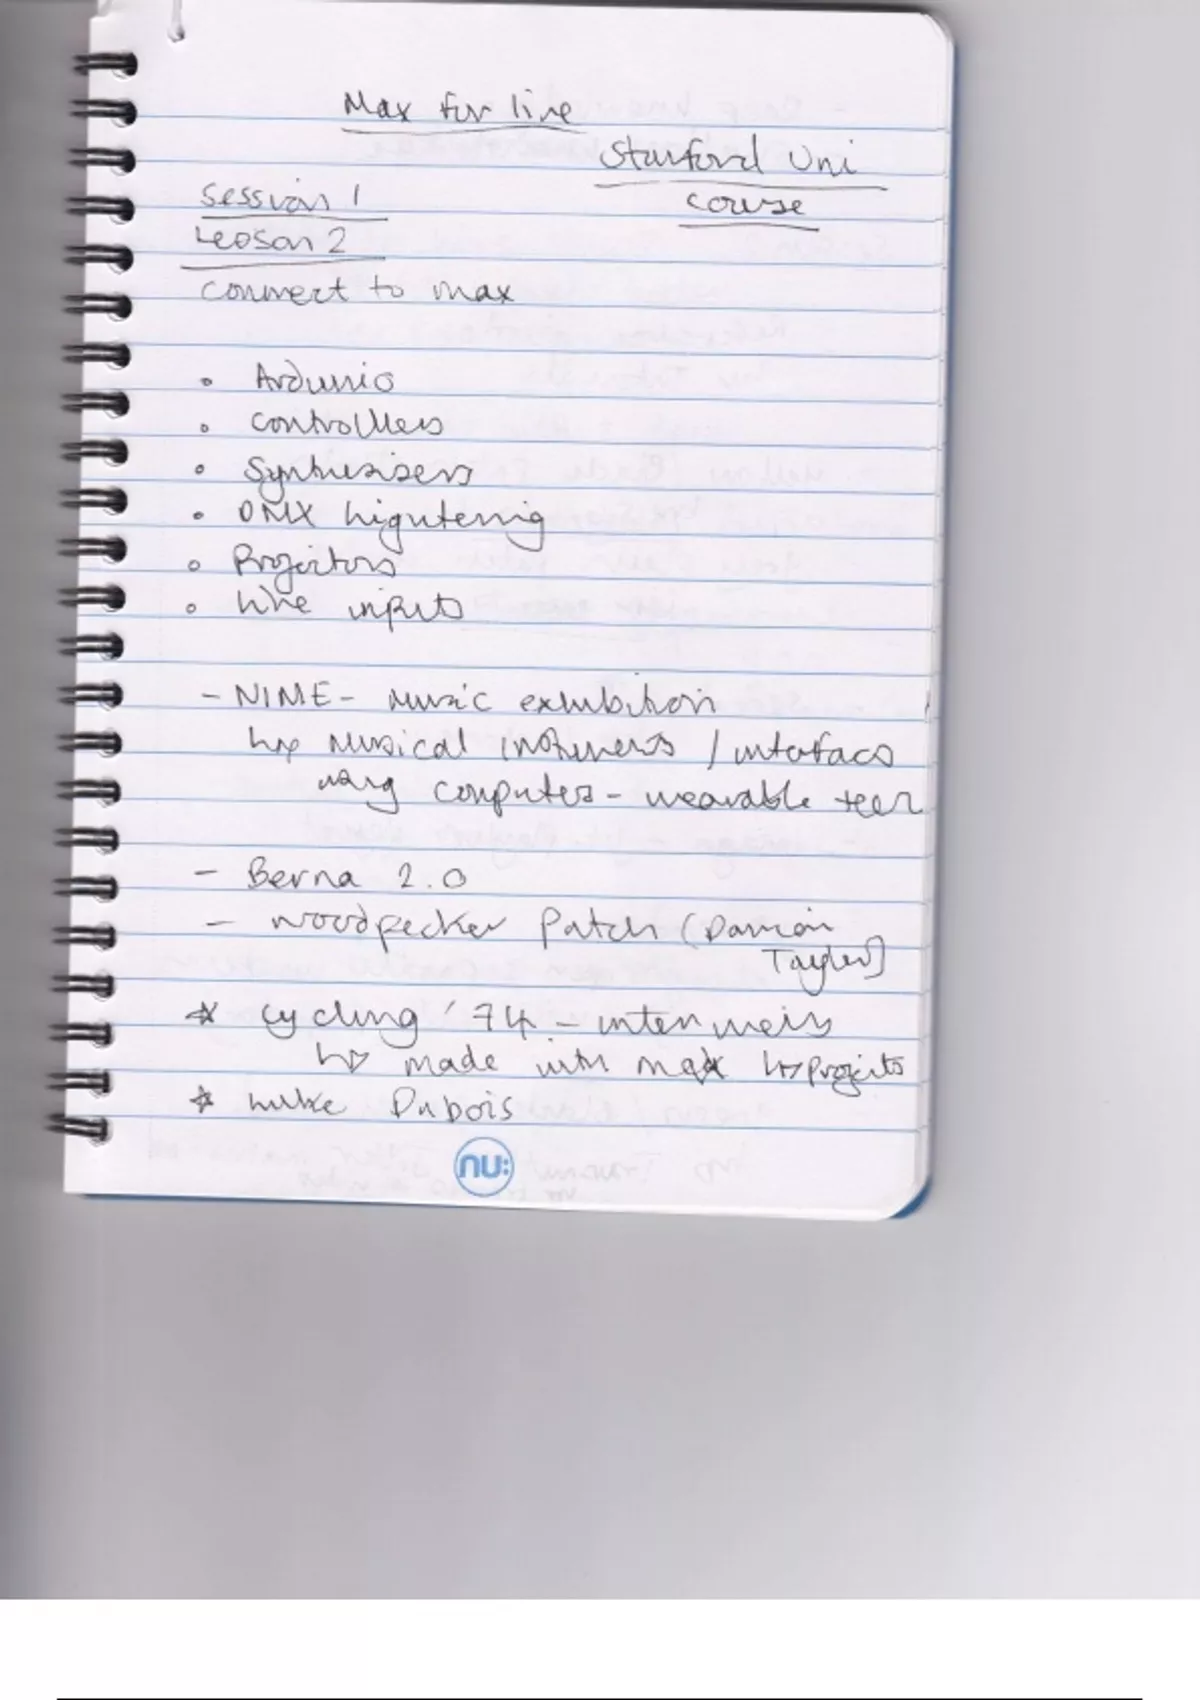 Max for live
Stanford Uni
course
Session 1
Lesson 2
connect to max
• Ardunio
• controllers
• Synthesisers
• DMX lighting
• Projectors
• Live inputs
- NIME - Music exhibition
↳ Musical instruments / interfaces
using computers - wearable tech
- Berna 2.0
- woodpecker Patch (Damian
Taylor)
* Cycling '74 - interviews
↳ made with max ↳ projects
* Luke Dubois
nu: